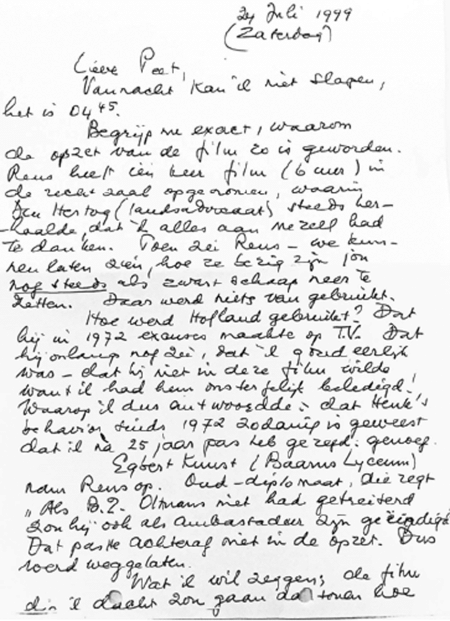 24 Juli 1999
(Zaterdag)
Lieve Peet,
Vannacht kan ik niet slapen,
het is 04 45.
Begrijp nu exact, waarom
de opzet van de film zo is geworden.
Rens heeft één keer film (6 uur) in
de rechtzaal opgenomen, waarin
Den Hertog (landsadvocaat) steeds her-
-haalde, dat ik alles aan mezelf had
te danken. Toen zei Rens - we kun-
nen laten zien, hoe ze bezig zijn jou
nog steeds als zwart schaap neer te
zetten. Daar werd niets van gebruikt.
Hoe werd Hofland gebruikt? Dat
hij in 1972 excuses maakte op T.V. Dat
hij onlangs nog zei, dat ik goud eerlijk
was - dat hij niet in deze film wilde,
want ik had hem onsterfelijk beledigd.
Waarop ik dus antwoordde: dat Henk's
behavior sinds 1972 zodanig is geweest
dat ik na 25 jaar pas heb gezegd: genoeg.
Egbert Kunst (Baarns Lyceum)
nam Rens op. Oud-diplomaat, die zegt
„Als B.Z. Oltmans niet had getreiterd
zou hij ook als ambassadeur zijn geëindigd
Dat paste achteraf niet in de opzet. Dus
werd weggelaten.
Wat ik wil zeggen; de film
die ik dacht zou gaan dat tonen hoe